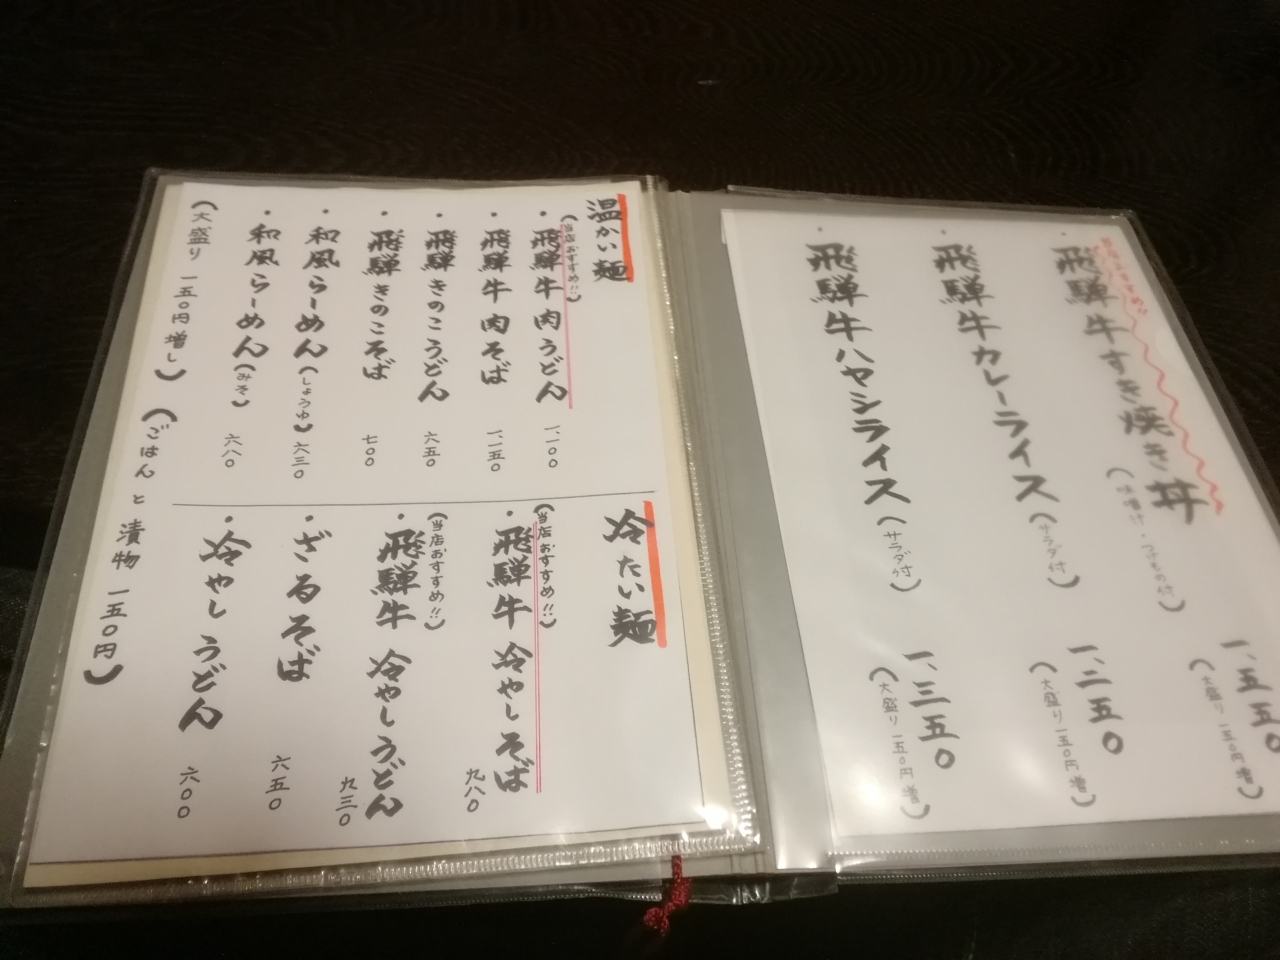 当店おすすめ!!
・飛騨牛すき焼き丼
(味噌汁・つけもの付)
一、五五〇
(大盛り 一五〇円増)
・飛騨牛カレーライス(サラダ付)
一、二五〇
(大盛り 一五〇円増)
・飛騨牛ハヤシライス(サラダ付)
一、三五〇
(大盛り 一五〇円増)
温かい麺
(当店おすすめ!!)
・飛騨牛肉うどん 一、一〇〇
・飛騨牛肉そば 一、一五〇
・飛騨きのこうどん 六五〇
・飛騨きのこそば 七〇〇
・和風らーめん(しょうゆ) 六三〇
・和風らーめん(みそ) 六八〇
冷たい麺
(当店おすすめ!!)
・飛騨牛 冷やしそば 九八〇
(当店おすすめ!!)
・飛騨牛 冷やしうどん 九三〇
・ざるそば 六五〇
・冷やしうどん 六〇〇
(大盛り 一五〇円増し)
(ごはんと漬物 一五〇円)